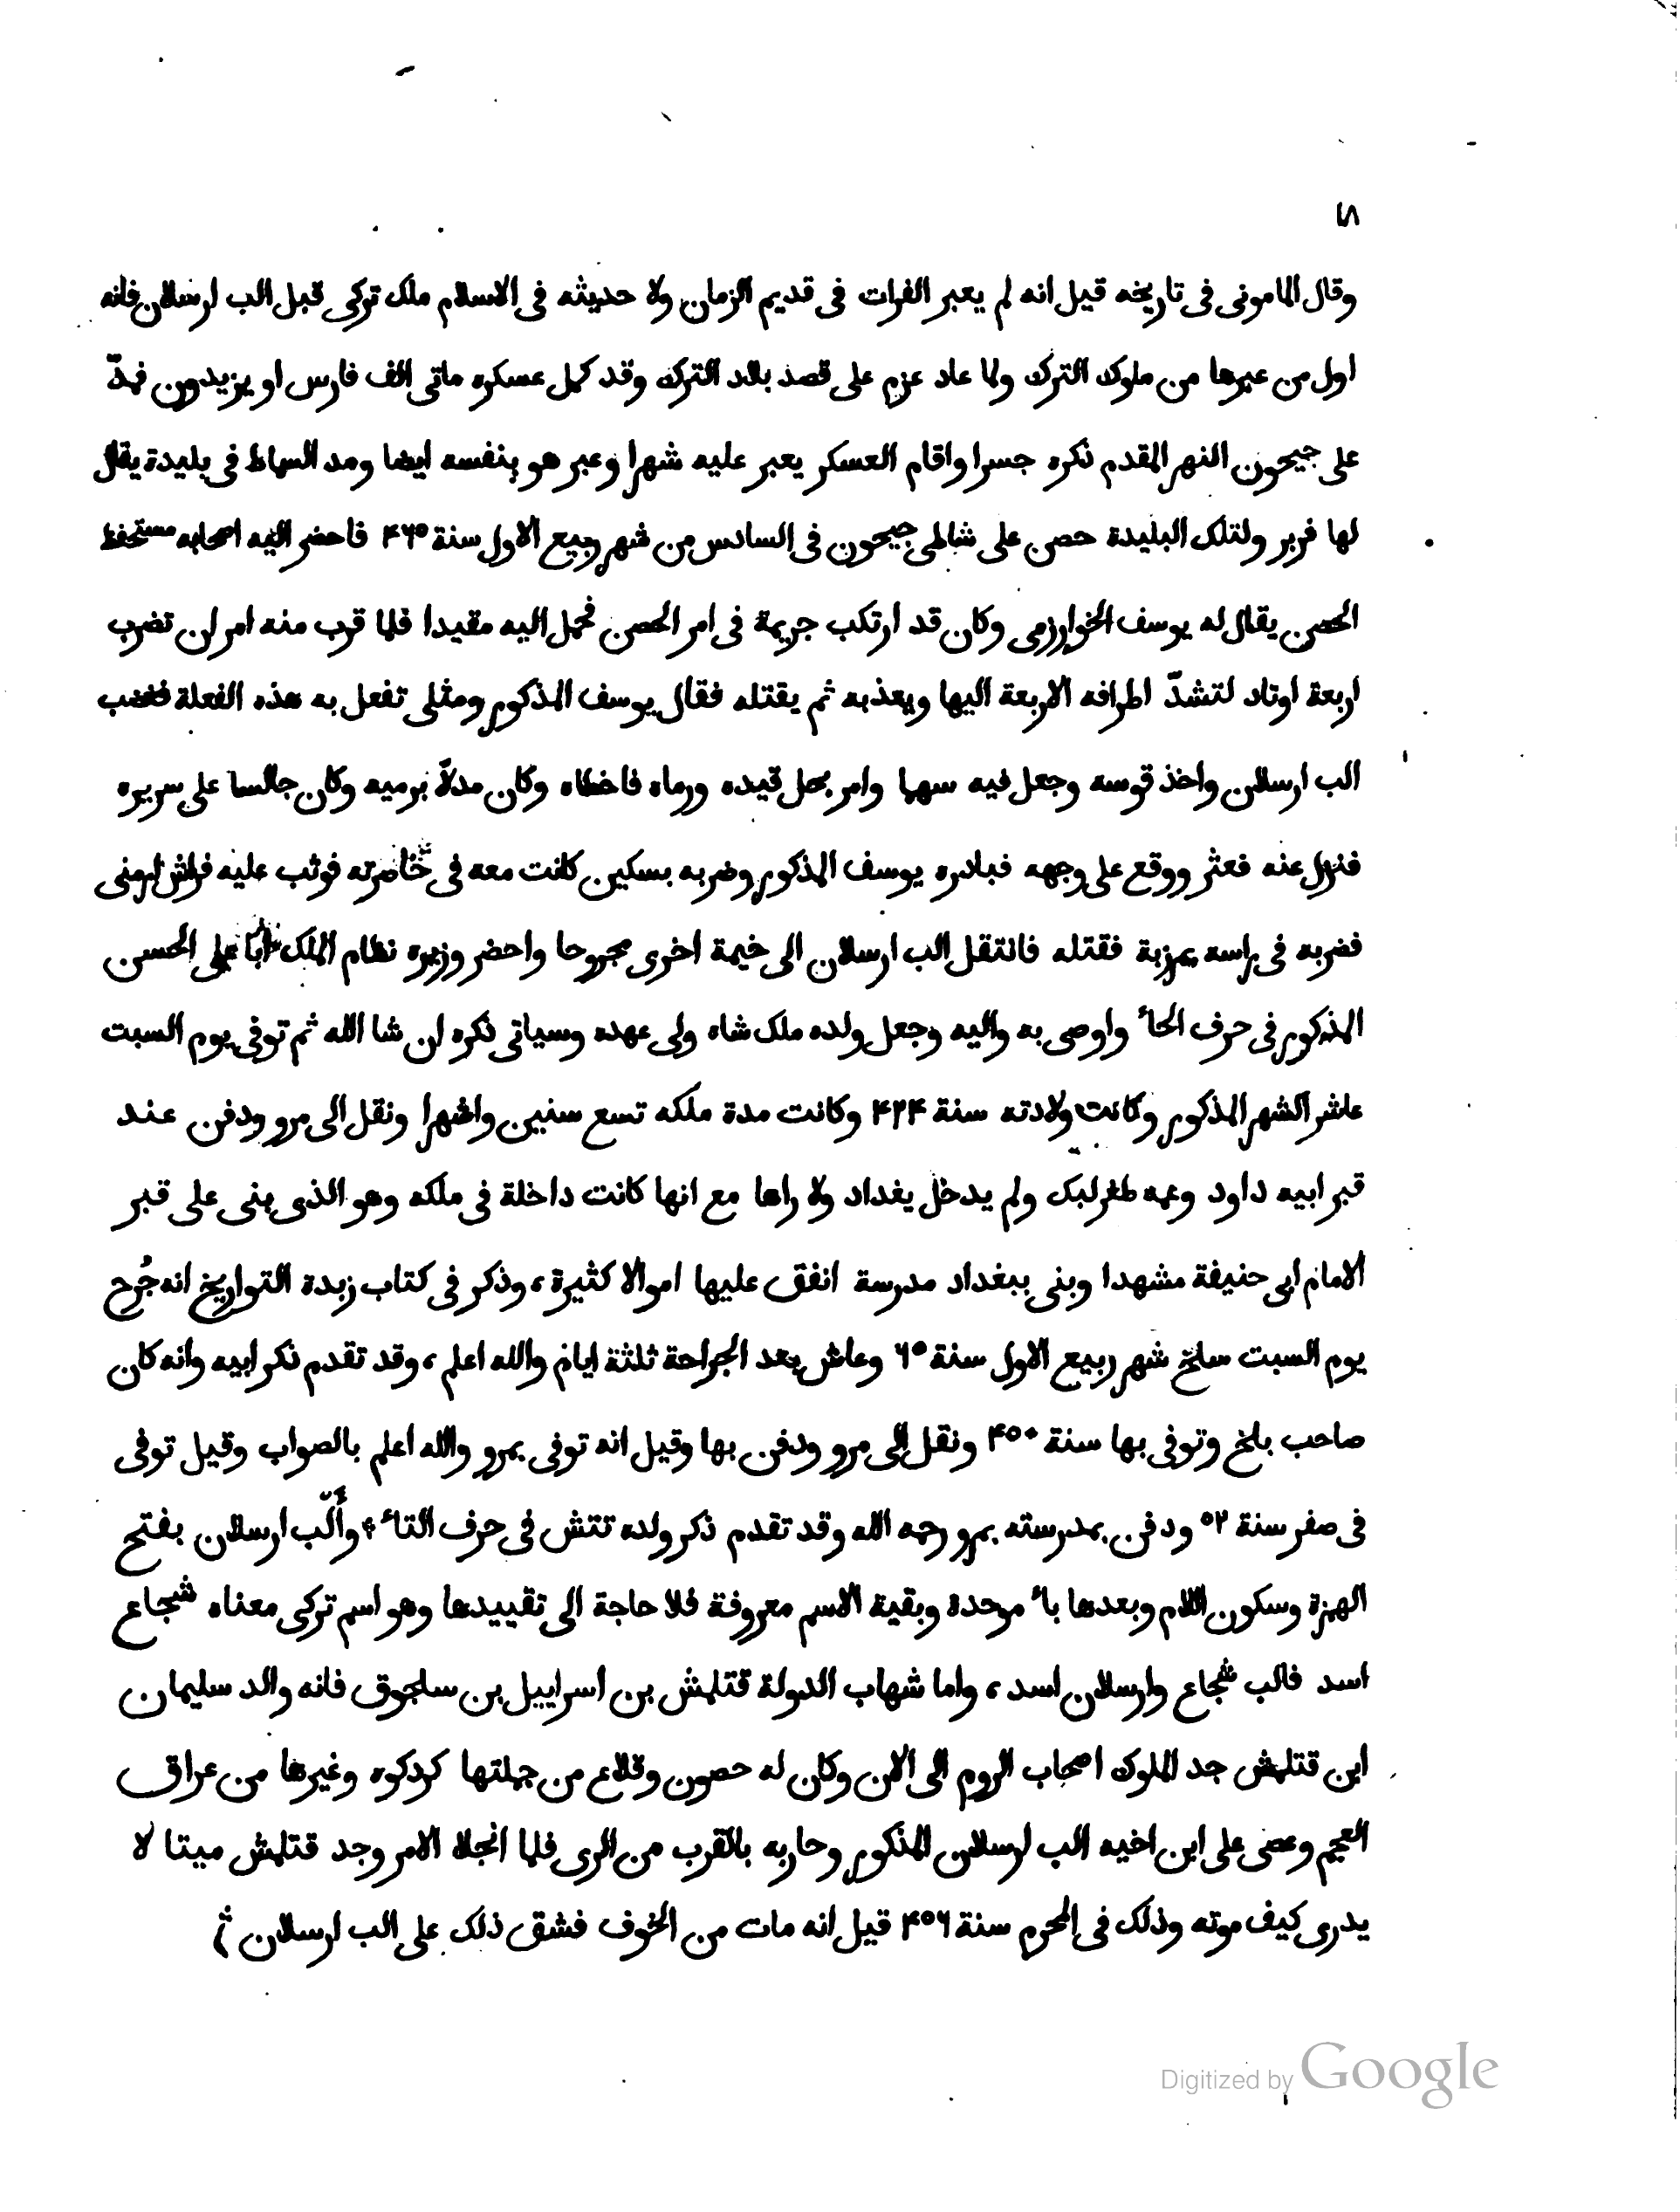 ٢٨
وقال المامونى فى تاريخه قيل انه لم يعبر الفرات فى قديم الزمان ولا حديثه فى الاسلام ملك تركى قبل الب ارسلان فانه
اول من عبرها من ملوك الترك ولما عاد عزم على قصد بلاد الترك وقد كمل عسكره ماتى الف فارس او يزيدون فمدّ
على جيحون النهر المقدم ذكره جسرا واقام العسكر يعبر عليه شهرا وعبر هو بنفسه ايضا ومد السماط فى بليدة يقال
لها فربر ولتلك البليدة حصن على شاطى جيحون فى السادس من شهر ربيع الاول سنة ۴۶۵ فاحضر اليه اصحابه مستحفظ
الحصن يقال له يوسف الخوارزمى وكان قد ارتكب جريمة فى امر الحصن فحمل اليه مقيدا فلما قرب منه امر ان تضرب
اربعة اوتاد لتشدّ اطرافه الاربعة اليها ويعذبه ثم يقتله فقال يوسف المذكور ومثلى تفعل به هذه الفعلة فغضب
الب ارسلان واخذ قوسه وجعل فيه سهما وامر بحل قيده ورماه فاخطاه وكان مدلّا برميه وكان جالسا على سريره
فنزل عنه فعثر ووقع على وجهه فبادره يوسف المذكور وضربه بسكين كانت معه فى خاصرته فوثب عليه فراش ارمنى
فضربه فى راسه بمرزبة فقتله فانتقل الب ارسلان الى خيمة اخرى مجروحا واحضر وزيره نظام الملك ابا على الحسن
المذكور فى حرف الحاء واوصى به واليه وجعل ولده ملك شاه ولى عهده وسياتى ذكره ان شا الله ثم توفى يوم السبت
عاشر الشهر المذكور وكانت ولادته سنة ۴۲۴ وكانت مدة ملكه تسع سنين واشهرا ونقل الى مرو ودفن عند
قبر ابيه داود وعمه طغرلبك ولم يدخل بغداد ولا راها مع انها كانت داخلة فى ملكه وهو الذى بنى على قبر
الامام ابى حنيفة مشهدا وبنى ببغداد مدرسة انفق عليها اموالا كثيرة، وذكر فى كتاب زبدة التواريخ انه جُرح
يوم السبت سلخ شهر ربيع الاول سنة ۶۵ وعاش بعد الجراحة ثلثة ايام والله اعلم، وقد تقدم ذكر ابيه وانه كان
صاحب بلخ وتوفى بها سنة ۴۵۰ ونقل الى مرو ودفن بها وقيل انه توفى بمرو والله اعلم بالصواب وقيل توفى
فى صفر سنة ۵۲ ودفن بمدرسته بمرو رحمه الله وقد تقدم ذكر ولده تتش فى حرف التاء، وألْب ارسلان بفتح
الهمزة وسكون اللام وبعدها باء موحدة وبقية الاسم معروفة فلا حاجة الى تقييدها وهو اسم تركى معناه شجاع
اسد فالب شجاع وارسلان اسد، واما شهاب الدولة قتلمش بن اسراييل بن سلجوق فانه والد سليمان
ابن قتلمش جد الملوك اصحاب الروم الى الان وكان له حصون وقلاع من جملتها كردكوه وغيرها من عراق
العجم وعصى على ابن اخيه الب ارسلان المذكور وحاربه بالقرب من الرى فلما انجلا الامر وجد قتلمش ميتا لا
يدرى كيف موته وذلك فى المحرم سنة ۴۵۶ قيل انه مات من الخوف فشق ذلك على الب ارسلان
Digitized by Google